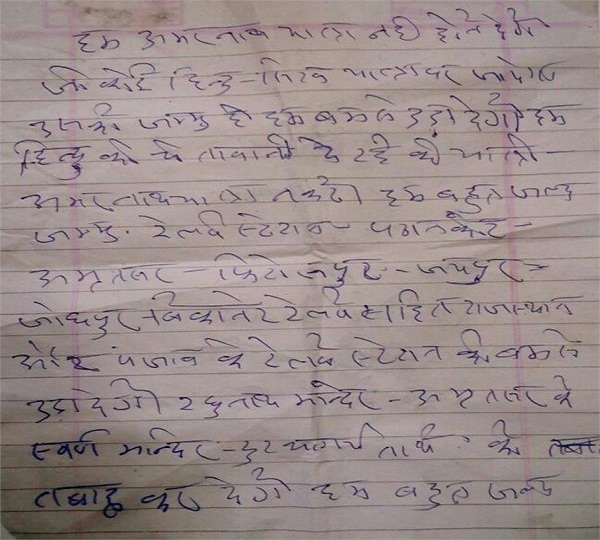 हम अमरनाथ यात्रा नही होने देगे
जो कोई हिन्दु-सिख यात्रा पर जायेगा
उसको जम्मु मे हम बमसे उड़ा देगे हम
हिन्दु को चेतावनी दे रहे की यात्री-
अमरनाथ यात्रा न करे। हम बहुत जल्द
जम्मु. रेलवे स्टेशन - पठानकोट -
अमृतसर - फिरोजपुर - जयपुर -
जोधपुर - बिकानेर रेलवे सहित राजस्थान
और पंजाब के रेलवे स्टेशन को बमसे
उड़ा देगे रघुनाथ मन्दिर - अमृतसर के
स्वर्ण मन्दिर - को
तबाह कर देगे हम बहुत जल्द